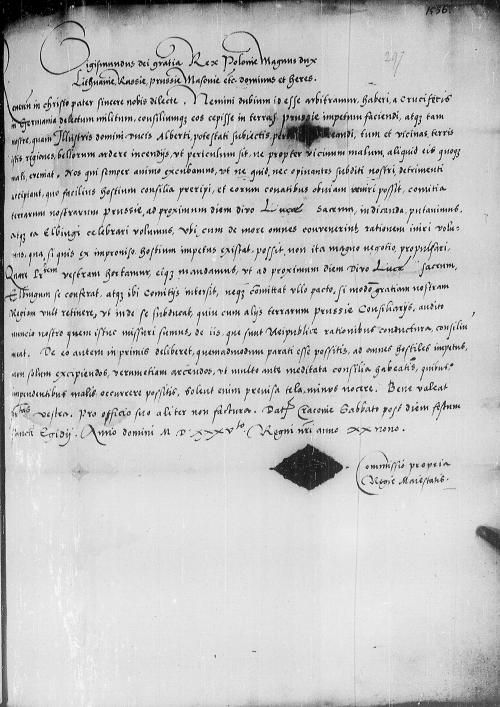 1536
Sigismundus dei gratia Rex Polonie Magnus dux
Lithuanie, Russie, prussie, Masouie etc. dominus et heres.
in christo pater sincere nobis dilecte. Nemini dubium id esse arbitramur, haberi, a Cruciferis
in Germania delectum militum, consiliumque eos cepisse in terras prussie impetum faciendi, atque tam
nostre, quam Illustris domini ducis Alberti, potestati subiectis, tum et vicinas, terris
istis regiones, bellorum ardere incendijs, ut periculum sit, ne propter vicinum malum, aliquid eis quoque
mali, eveniat. Nos qui semper animo excubamus, ut ne quid, nec opinantes subditi nostri, detrimenti
accipiant, quo facilius hostium consilia preripi, et eorum conatibus obviam iri possit, comitia
terrarum nostrarum prussie, ad proximum diem divo Luce sacrum, indicanda, putavimus,
atque ea Elbingi celebrari volumus, ubi cum de more omnes convenerint, rationem iniri volu-
mus, qua, si quis ex improviso hostium impetus existat, possit, non ita magno negotio, propulsari,
Quare vestram hortamur, eique mandamus, ut ad proximum diem Divo Luce sacrum,
Elbingum se conferat, atque ibi Comitijs intersit, neque committat ullo pacto, si modo gratiam nostram
Regiam vult retinere, ut inde se subducat, quin cum alijs terrarum prussie Consiliarijs, audito
nuncio nostro quem istuc missuri sumus, de iis, que sunt Reipublice rationibus conductura, consiliu
ineat. De eo autem in primis deliberet, quemadmodum parati esse possitis, ad omnes hostiles impetus,
non solum excipiendos, verumetiam arcendos, ut multo ante meditata consilia habeatis, quibus
impendentibus malis occurrere possitis, solent enim previsa tela, minus nocere. Bene valeat
vestra. Pro officio suo aliter non factura. Dat Cracovie Sabbato post diem festum
sancti Egidij. Anno domini M D XXXVto Regni nri anno XX nono.
Commissio propria
Regie Maiestatis.